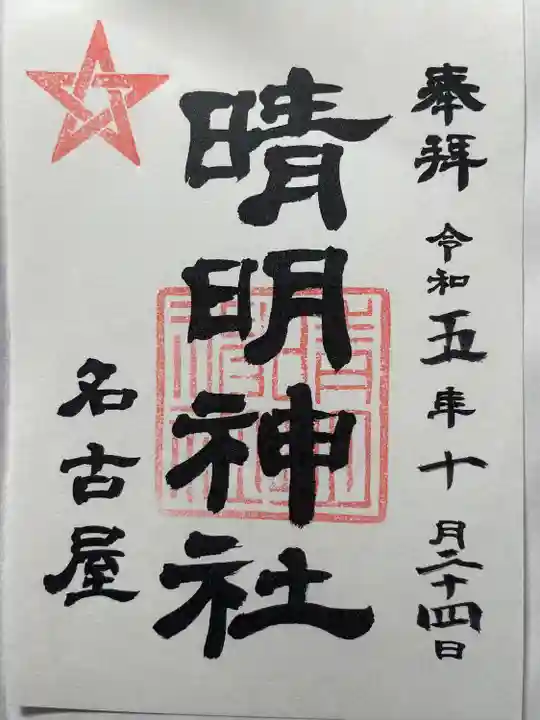 奉拝 令和五年十月二十四日
晴明神社
名古屋